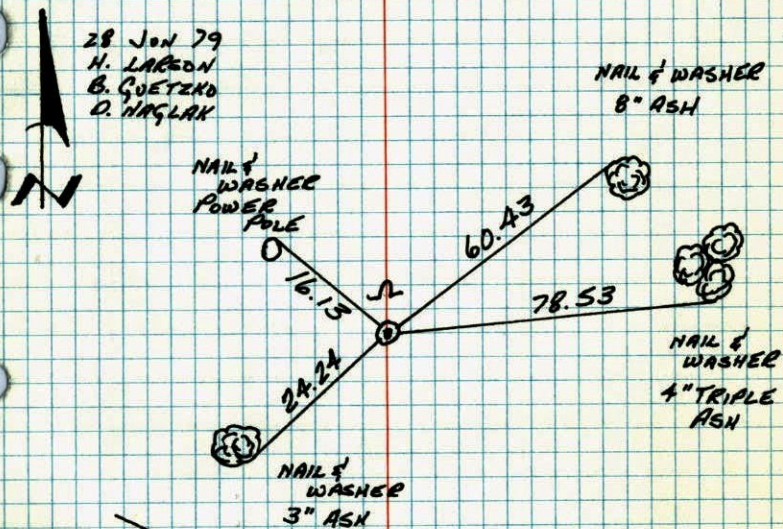 28 JUN 79
H. LARSON
B. GUETZKO
D. NAGLAK
N
NAIL & WASHER
8" ASH
NAIL &
WASHER
POWER
POLE
16.13
60.43
78.53
24.24
NAIL &
WASHER
4" TRIPLE
ASH
NAIL &
WASHER
3" ASH